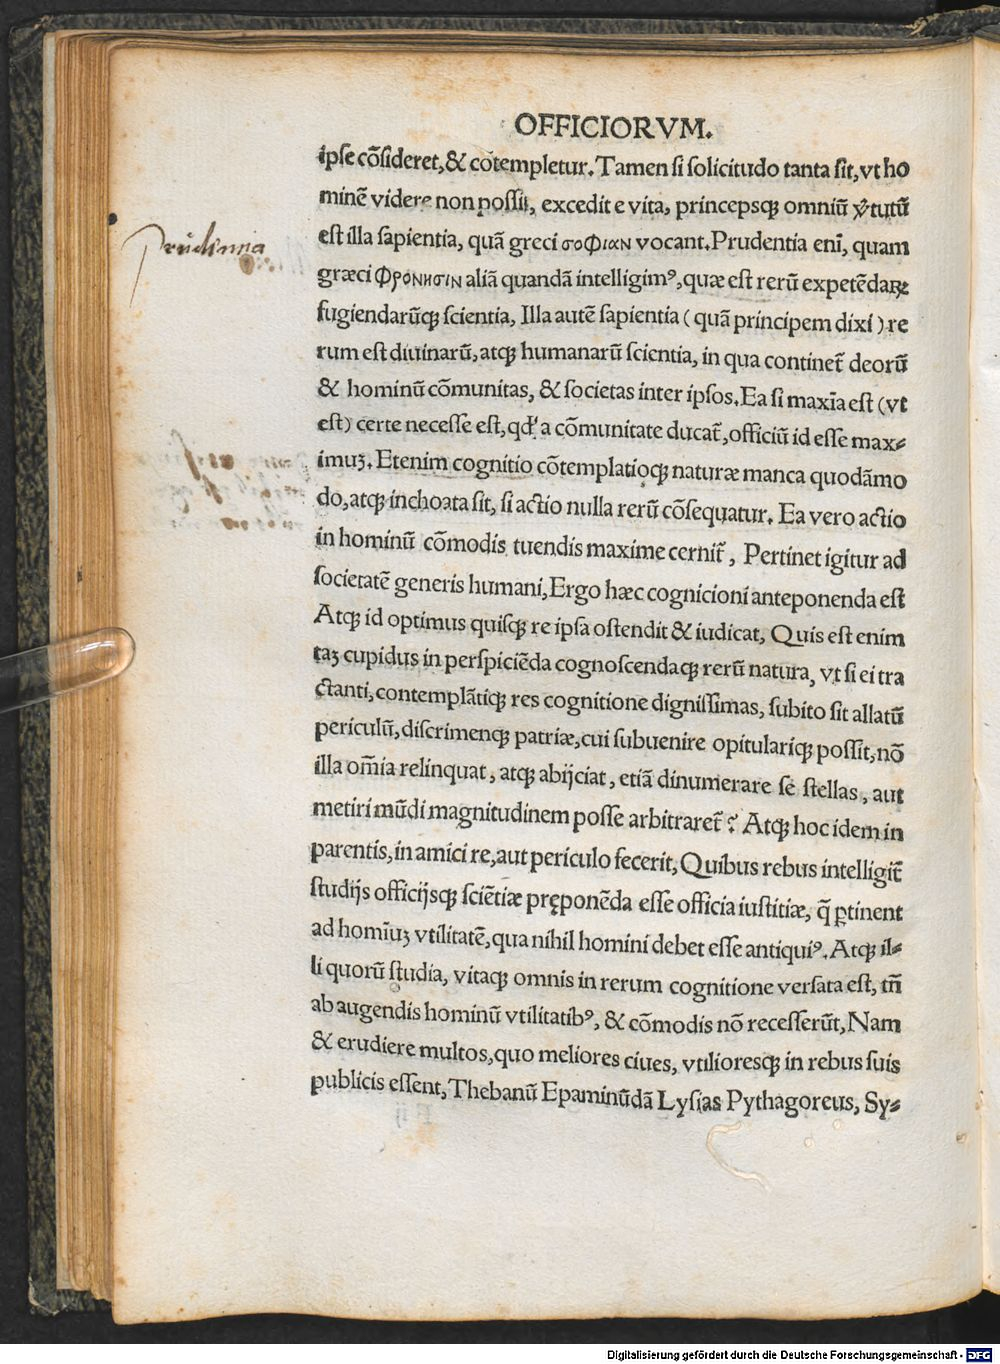 OFFICIORVM.
ipse cõsideret, & cõtempletur. Tamen si solicitudo tanta sit, vt ho
minẽ videre non possit, excedit e vita, princepsq; omniũ v̾tutũ
est illa sapientia, quã greci σοΦιαν vocant. Prudentia eni͂, quam
Prudentia
græci Φρονησιν aliã quandã intelligimꝰ, quæ est rerũ expetẽdaꝝ
fugiendarũq; scientia, Illa autẽ sapientia ( quã principem dixi ) re
rum est diuinarũ, atq; humanarũ scientia, in qua continet᷑ deorũ
& hominũ cõmunitas, & societas inter ipsos. Ea si maxi͂a est (vt
est) certe necesse est, qd' a cõmunitate ducat᷑, officiũ id esse max⸗
imuʒ. Etenim cognitio cõtemplatioq; naturæ manca quodãmo
do, atq; inchoata sit, si actio nulla rerũ cõsequatur. Ea vero actio
in hominũ cõmodis tuendis maxime cernit᷑, Pertinet igitur ad
societatẽ generis humani, Ergo hæc cognicioni anteponenda est
Atq; id optimus quisq; re ipsa ostendit & iudicat, Quis est enim
taʒ cupidus in perspiciẽda cognoscendaq; rerũ natura, vt si ei tra
ctanti, contemplãtiq; res cognitione dignissimas, subito sit allatũ
periculũ, discrimenq; patriæ, cui subuenire opitulariq; possit, nõ
illa om͂ia relinquat, atq; abijciat, etiã dinumerare se stellas, aut
metiri mũdi magnitudinem posse arbitraret᷑ ? Atq; hoc idem in
parentis, in amici re, aut periculo fecerit, Quibus rebus intelligit᷑
studijs officijsq; sciẽtiæ pręponẽda esse officia iustitiæ, q̃ ꝑtinent
ad homi͂uʒ vtilitatẽ, qua nihil homini debet esse antiquiꝰ. Atq; il⸗
li quorũ studia, vitaq; omnis in rerum cognitione versata est, tñ
ab augendis hominũ vtilitatibꝰ, & cõmodis nõ recesserũt, Nam
& erudiere multos, quo meliores ciues, vtilioresq; in rebus suis
publicis essent, Thebanũ Epaminũdã Lysias Pythagoreus, Sy⸗
Digitalisierung gefördert durch die Deutsche Forschungsgemeinschaft - DFG